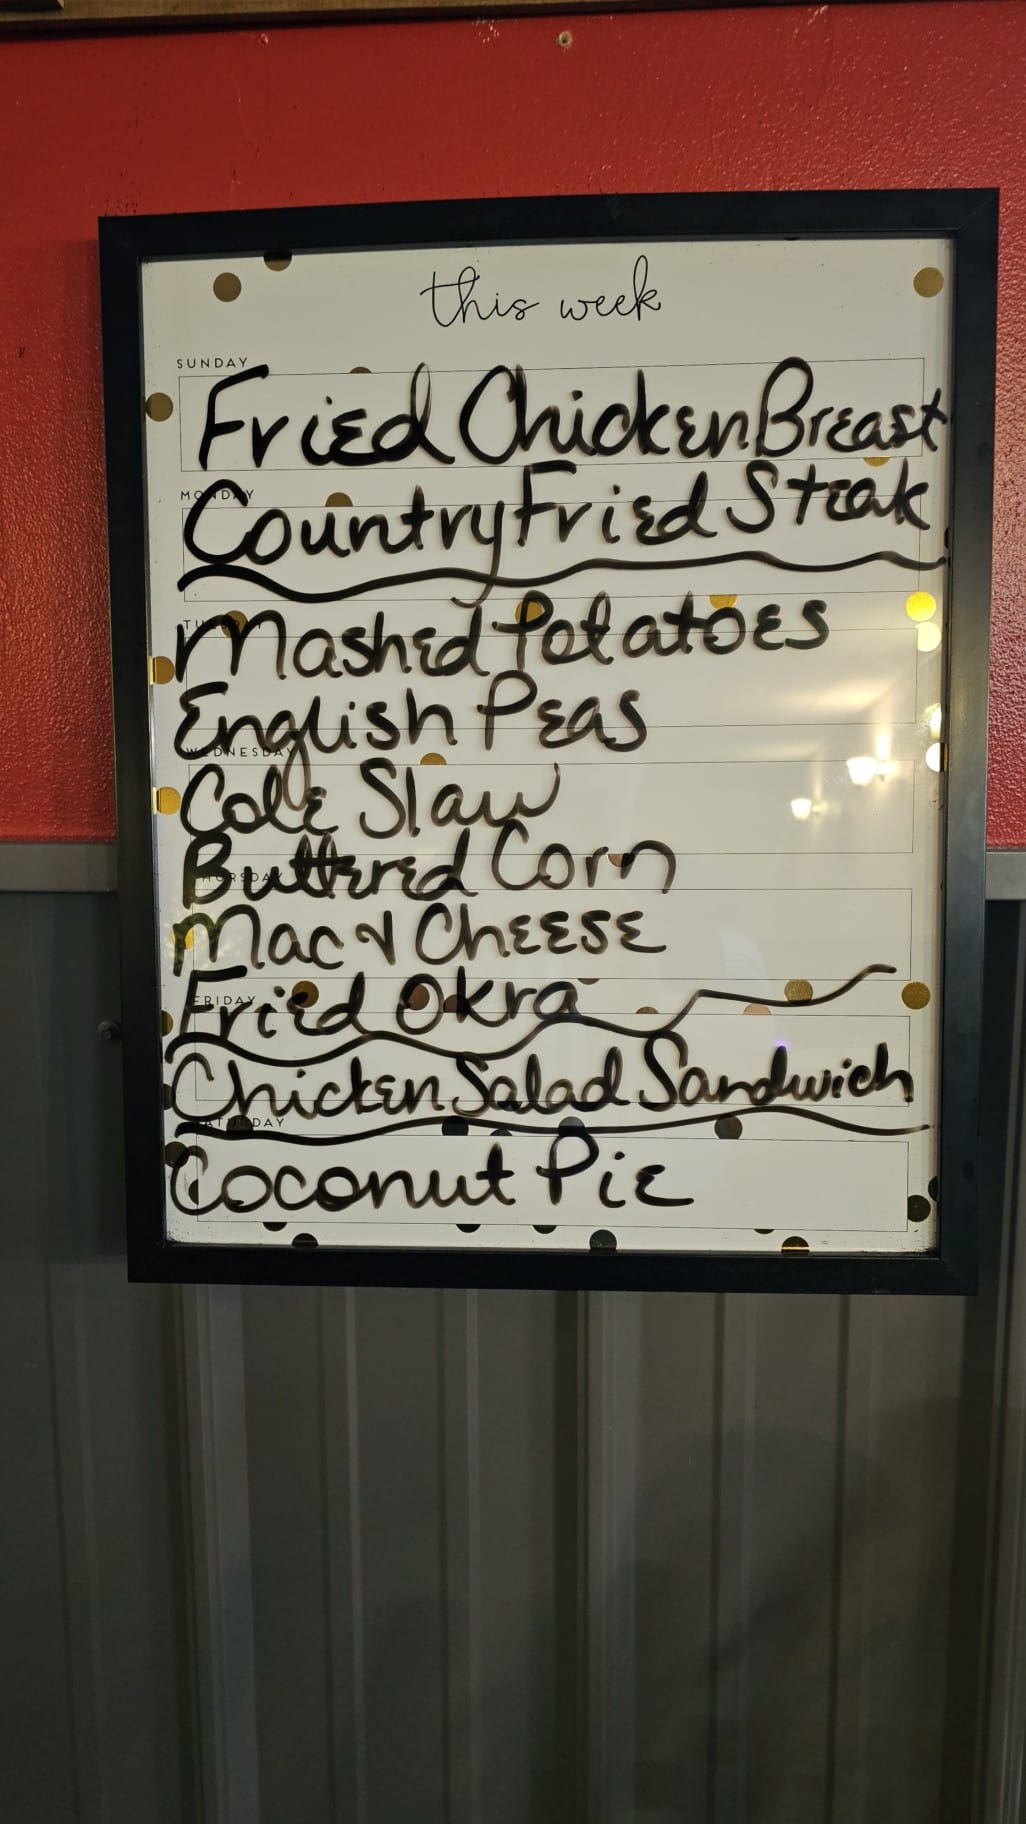 this week
SUNDAY
Fried Chicken Breast
MONDAY
Country Fried Steak
TUESDAY
Mashed Potatoes
English Peas
WEDNESDAY
Cole Slaw
Buttered Corn
THURSDAY
Mac & Cheese
FRIDAY
Fried Okra
Chicken Salad Sandwich
SATURDAY
Coconut Pie